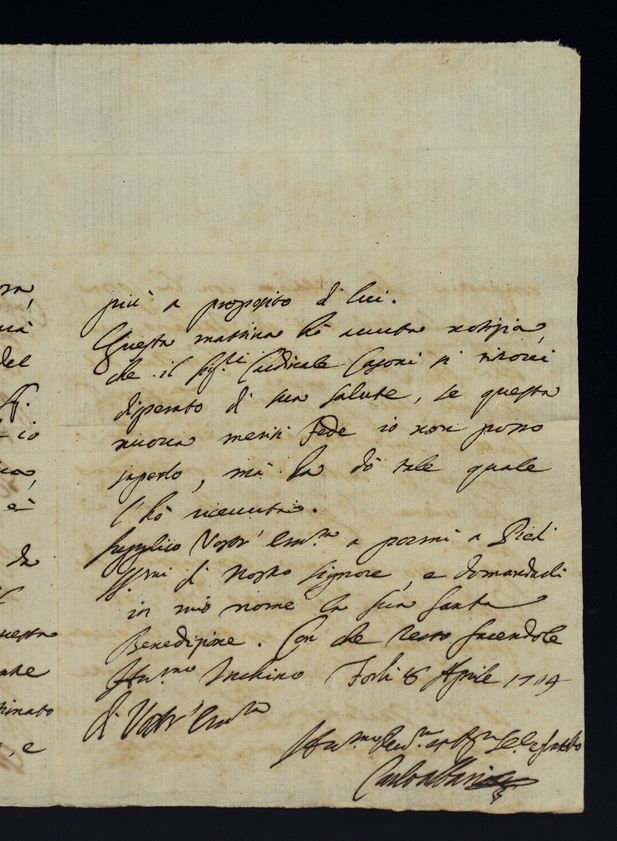 più a proposito di lui.
Questa mattina hò avuta notizia,
che il Sig.r Cardinale Casoni si ritrovi
disperato di sua salute, se questa
nuova meriti Fede io non posso
saperlo, mà la dò tale quale
l'hò ricevuta.
Supplico Vostr' Em.za a pormi a Piedi
di Nostro Signore, e domandarli
in mio nome la sua Santa
Benedizione. Con che resto facendole
Hu.mo Inchino Forlì 8 Aprile 1719
di Vostr' Em.za
Carlo Albani
ra,
del
io
è
da
questa
, e